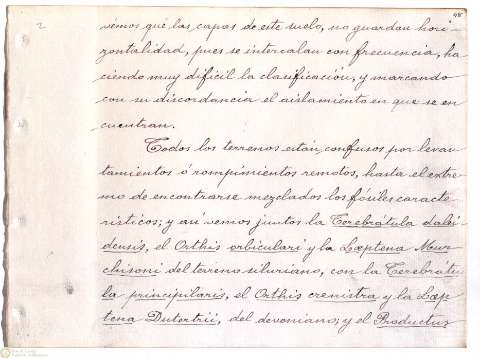 2
98
vémos que las capas de este suelo, no guardan hori-
zontalidad, pues se intercalan con frecuencia, ha-
ciendo muy dificil la clasificación, y marcando
con su discordancia el aislamiento en que se en-
cuentran.
Todos los terrenos están confusos por levan-
tamientos ó rompimientos remotos, hasta el extre-
mo de encontrarse mezclados los fósiles caracte-
risticos; y asi vemos juntos la Terebrátula dalei-
densis, el Orthis orbiculari y la Læptena Mur-
chisoni del terreno siluriano, con la Terebrátu-
la principilaris, el Orthis crenistra y la Læp-
tena Dutertrii, del devoniano; y el Productus